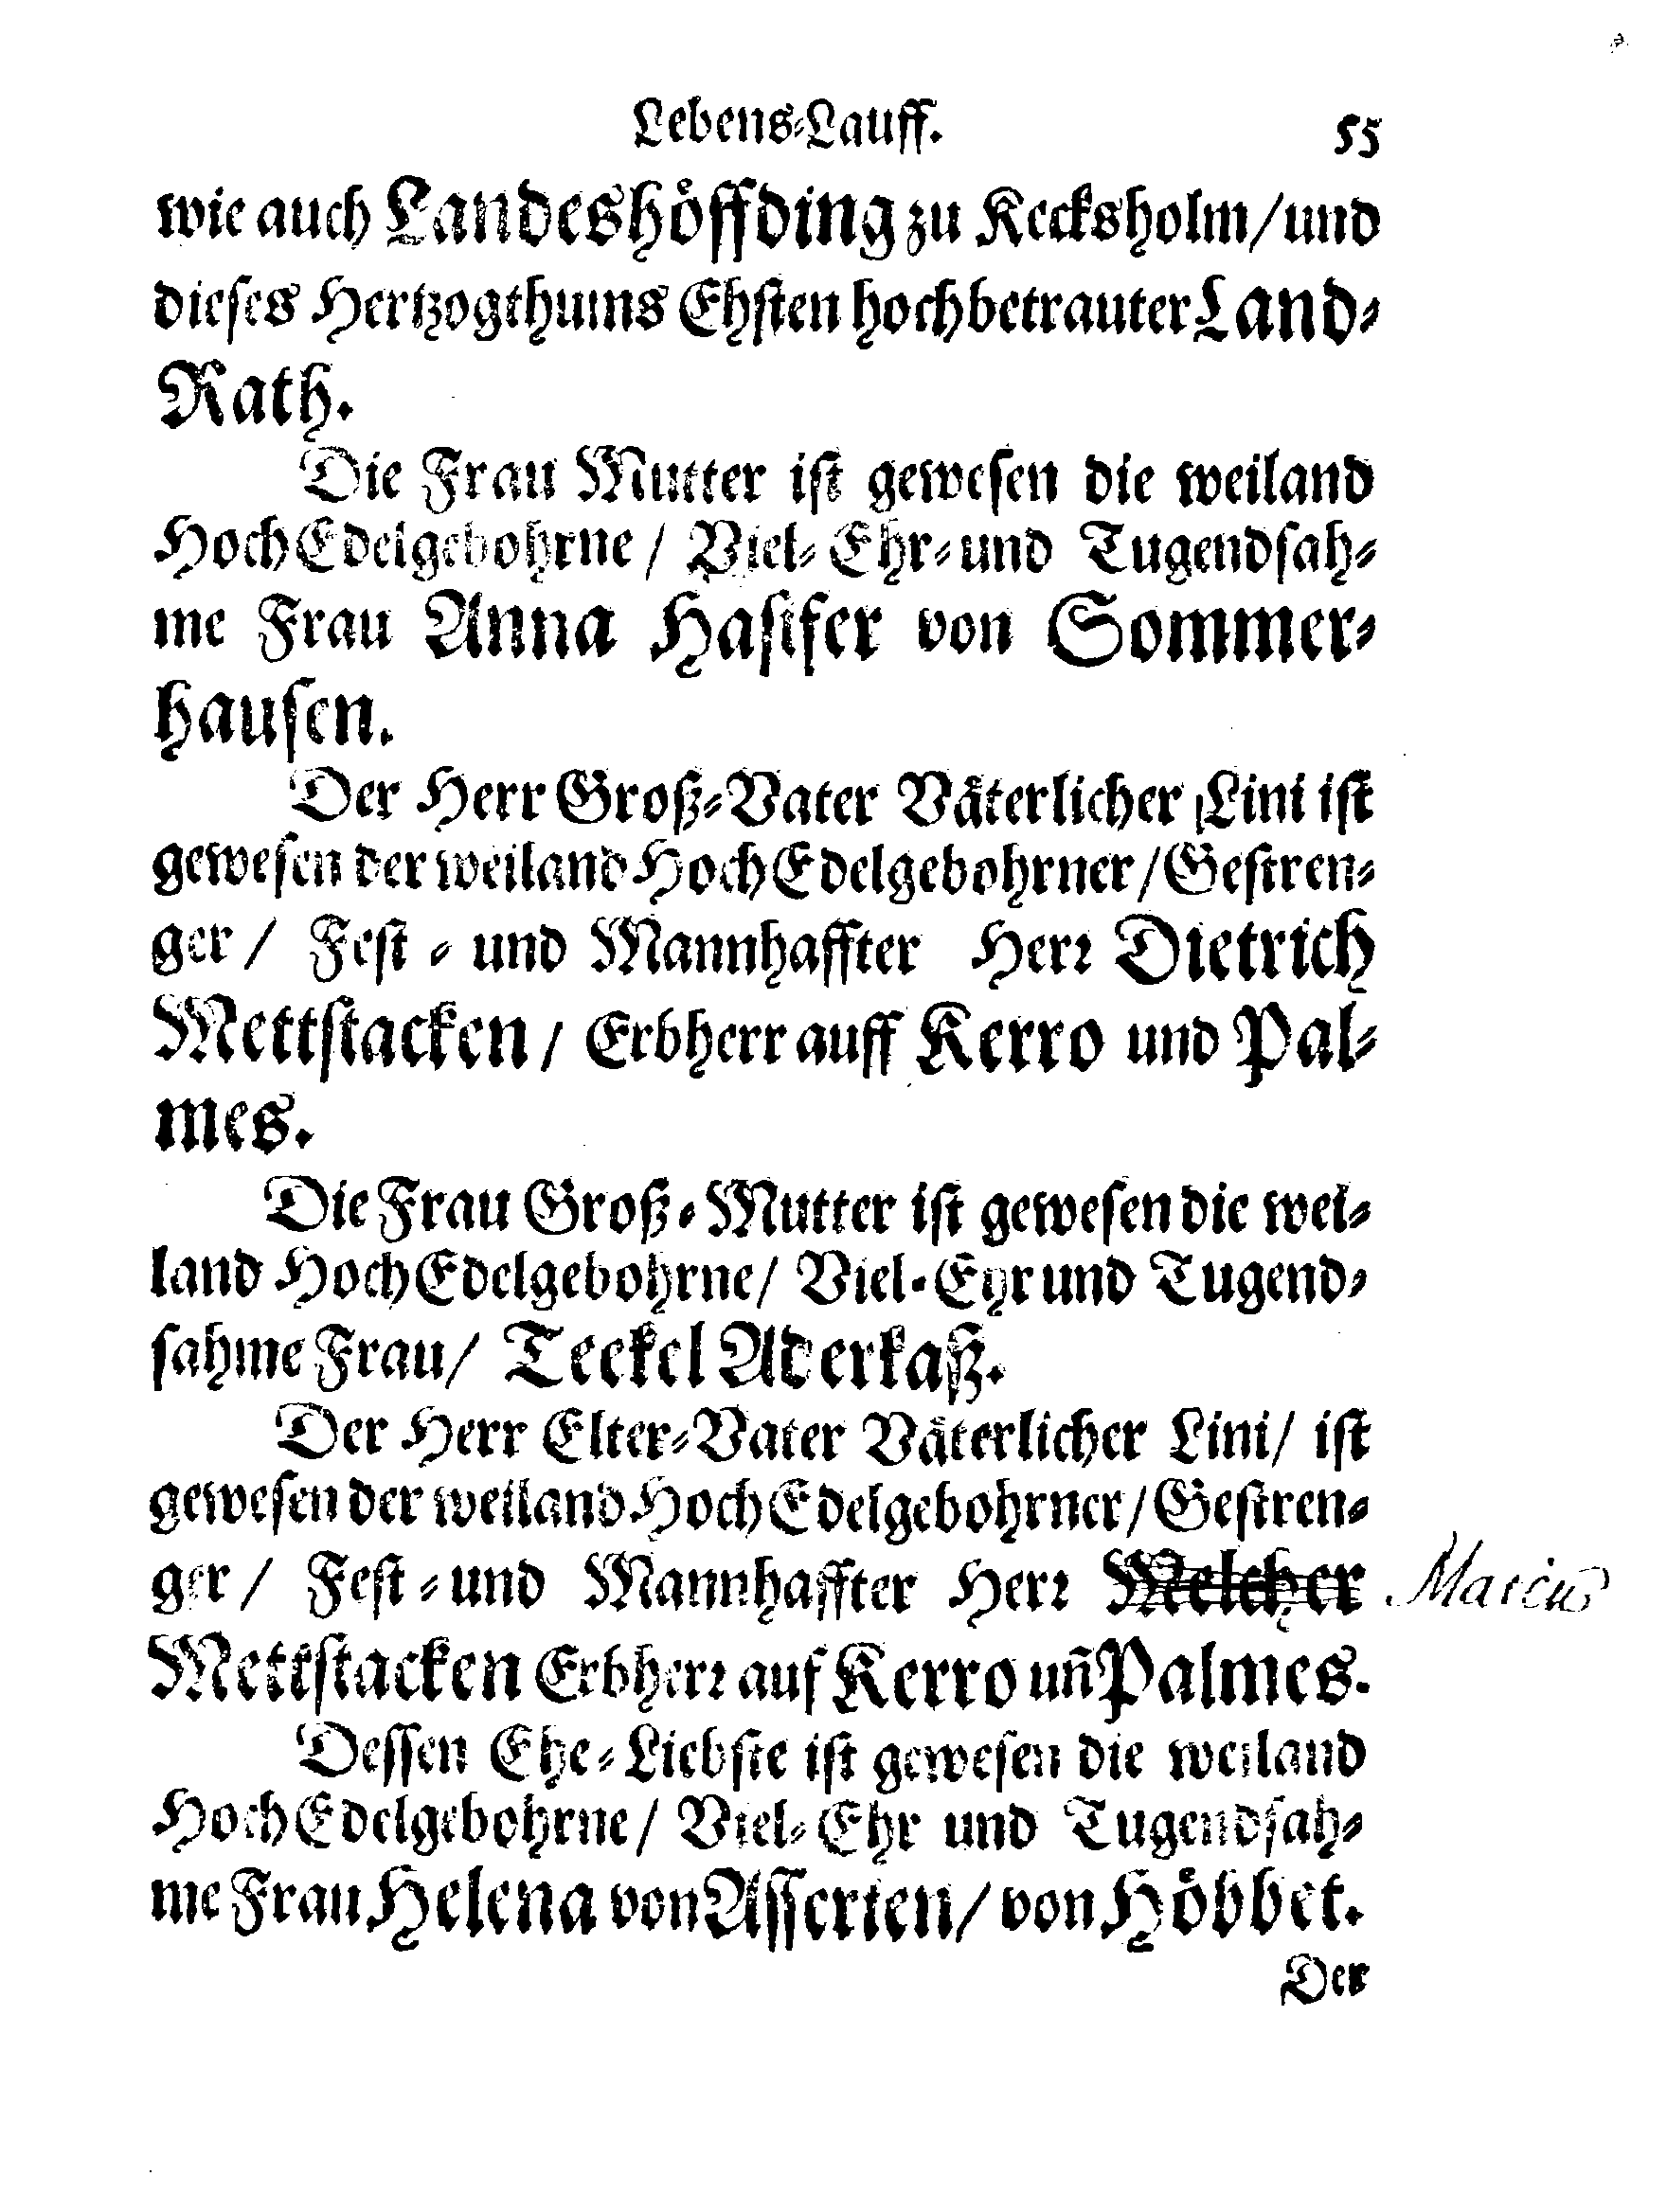 Lebens-Lauff. 55
wie auch Landeshöffding zu Kecksholm/und
dieses Hertzogthums Ehsten hochbetrauter Land-
Rath.
Die Frau Mutter ist gewesen die weiland
HochEdelgebohrne / Viel-Ehr-und Tugendsah-
me Frau Anna Hastfer von Sommer-
hausen.
Der Herr Groß-Vater Väterlicher Lini ist
gewesen der weiland HochEdelgebohrner/Gestren-
ger / Fest - und Mannhaffter Herr Dietrich
Mettstacken / Erbherr auff Kerro und Pal-
mes.
Die Frau Groß-Mutter ist gewesen die wei-
land HochEdelgebohrne/ Viel-Ehr und Tugend-
sahme Frau/ Teckel Aderkaß.
Der Herr Elter-Vater Väterlicher Lini/ ist
gewesen der weiland HochEdelgebohrner/Gestren-
ger / Fest-und Mannhaffter Herr Melcher Marcus
Mettstacken Erbherr auf Kerro uñ Palmes.
Dessen Ehe-Liebste ist gewesen die weiland
HochEdelgebohrne/ Viel-Ehr und Tugendsah-
me Frau Helena von Asserien/ von Höbbet.
Der